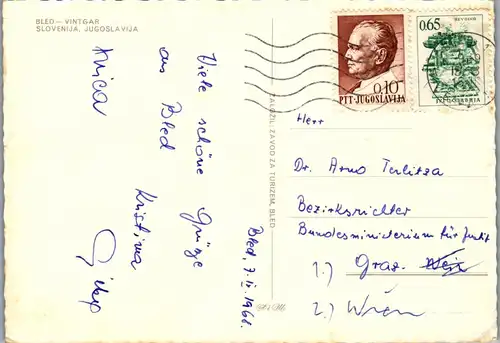 BLED — VINTGAR
SLOVENIJA, JUGOSLAVIJA
Viele schöne Grüße
aus Bled
Kristina
Bled, 7. IX. 1968.
ZALOŽIL: ZAVOD ZA TURIZEM, BLED
0.10
PTT-JUGOSLAVIJA
0.65
JUGOSLAVIJA
Herr
Dr. Arno Terlitza
Bezirksrichter
Bundesministerium für Justiz
1.) Graz
2.) Wien